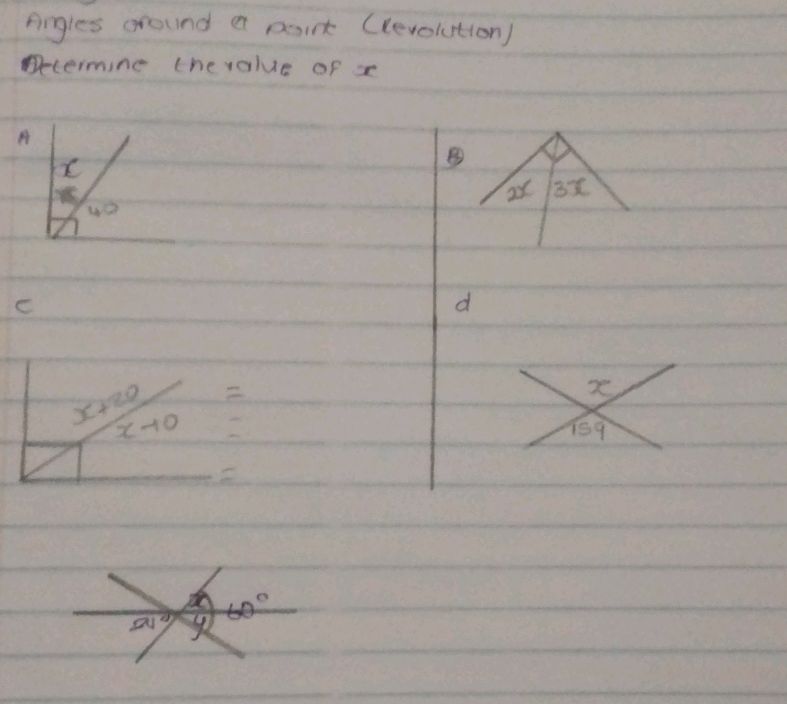 Angles around a point (Revolution)
Determine the value of x
A
x
40
B
2x 3x
c
x+20
x-10
=
=
=
d
x
159
x
60°
y